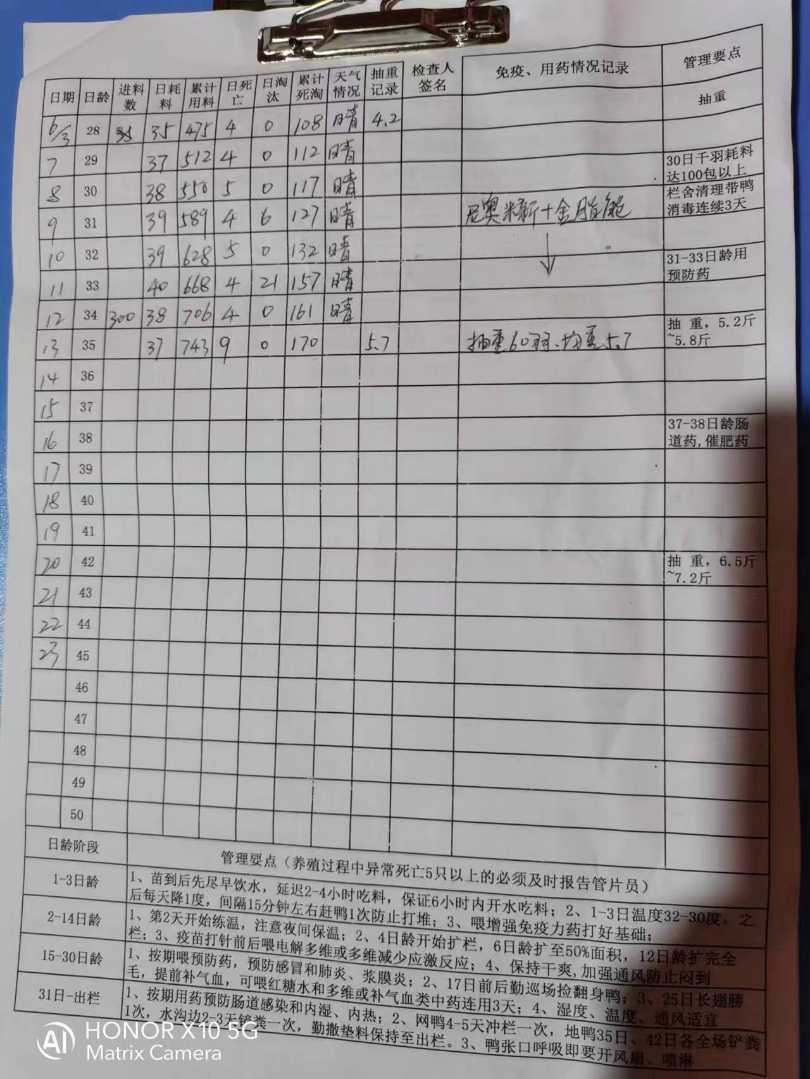 日期 日龄 进料数 日耗料 累计用料 日死亡 日淘汰 累计死淘 天气情况 抽重记录 检查人签名 免疫、用药情况记录 管理要点
抽重
6/3 28 35 475 4 0 108 晴 4.2
7 29 37 512 4 0 112 晴 30日千羽耗料达100包以上
8 30 38 550 5 0 117 晴 栏舍清理带鸭消毒连续3天
9 31 39 589 4 6 127 晴
10 32 39 628 5 0 132 晴 31-33日龄用预防药
11 33 40 668 4 21 157 晴
12 34 300 38 706 4 0 161 晴
13 35 37 743 9 0 170 5.7 抽重60羽、均重5.7 抽 重，5.2斤~5.8斤
14 36
15 37
16 38 37-38日龄肠道药,催肥药
17 39
18 40
19 41
20 42 抽 重，6.5斤~7.2斤
21 43
22 44
23 45
46
47
48
49
50
日龄阶段 管理要点（养殖过程中异常死亡5只以上的必须及时报告管片员）
1-3日龄 1、苗到后先尽早饮水，延迟2-4小时吃料，保证6小时内开水吃料；2、1-3日温度32-30度，之
后每天降1度，间隔15分钟左右赶鸭1次防止打堆；3、喂增强免疫力药打好基础；
2-14日龄 1、第2天开始练温，注意夜间保温；2、4日龄开始扩栏，6日龄扩至50%面积，12日龄扩完全
栏；3、疫苗打针前后喂电解多维或多维减少应激反应；4、保持干爽,加强通风防止闷到
15-30日龄 1、按期喂预防药，预防感冒和肺炎、浆膜炎；2、17日前后勤巡场捡翻身鸭；3、25日长翅膀
毛，提前补气血，可喂红糖水和多维或补气血类中药连用3天；4、湿度、温度、通风适宜
31日-出栏 1、按期用药预防肠道感染和内湿、内热；2、网鸭4-5天冲栏一次，地鸭35日、42日各全场铲粪
1次，水沟边2-3天铲粪一次，勤撒垫料保持至出栏。3、鸭张口呼吸即要开风扇、喷淋
AI HONOR X10 5G
Matrix Camera